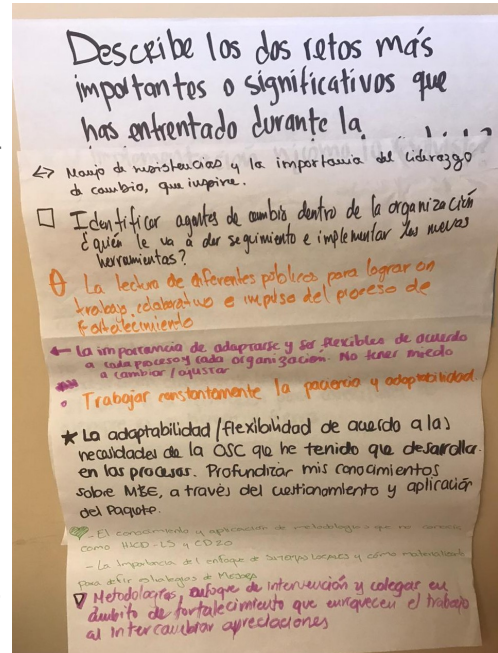 Describe los dos retos más
importantes o significativos que
has enfrentado durante la
Manejo de resistencias y la importancia del liderazgo
de cambio, que inspire.
Identificar agentes de cambio dentro de la organización
¿quién le va a dar seguimiento e implementar las nuevas
herramientas?
La lectura de diferentes públicos para lograr un
trabajo colaborativo e impulso del proceso de
fortalecimiento
La importancia de adaptarse y ser flexibles de acuerdo
a cada proceso y cada organización. No tener miedo
a cambiar/ajustar
Trabajar constantemente la paciencia y adaptabilidad.
La adaptabilidad/flexibilidad de acuerdo a las
necesidades de la OSC que he tenido que desarrollar
en los procesos. Profundizar mis conocimientos
sobre M&E, a través del cuestionamiento y aplicación
del Paquete.
- El conocimiento y aplicación de metodologías que no conocía
como HICD-LS y CD20
- La importancia del enfoque de Sistemas Locales y cómo
para estrategias de
Metodologías, enfoque de intervención y colegas en
ámbito de fortalecimiento que enriquecen el trabajo
al intercambiar apreciaciones